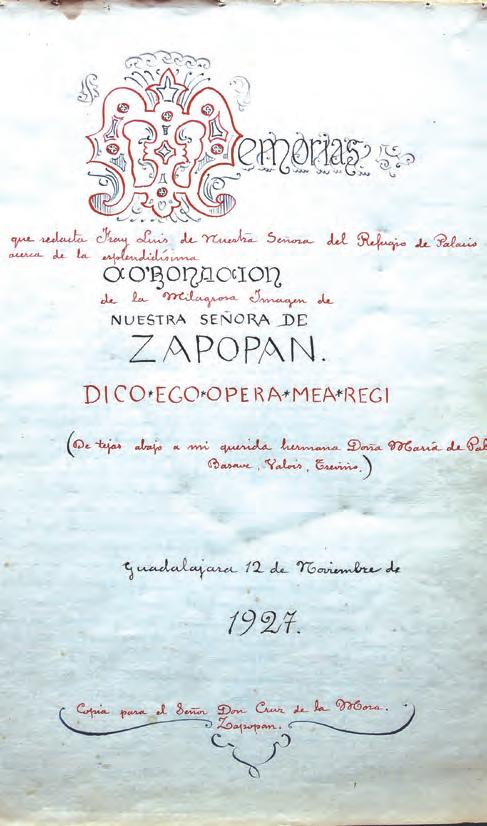 Memorias
que redacta Fray Luis de Nuestra Señora del Refugio de Palacio
acerca de la esplendidísima
CORONACION
de la Milagrosa Imagen de
NUESTRA SEÑORA DE
ZAPOPAN.
DICO*EGO*OPERA*MEA*REGI
(De tejas abajo a mi querida hermana Doña María de Pal
Basave, Valois, Treviño.)
Guadalajara 12 de Noviembre de
1927.
Copia para el Señor Don Cruz de la Mora.
Zapopan.